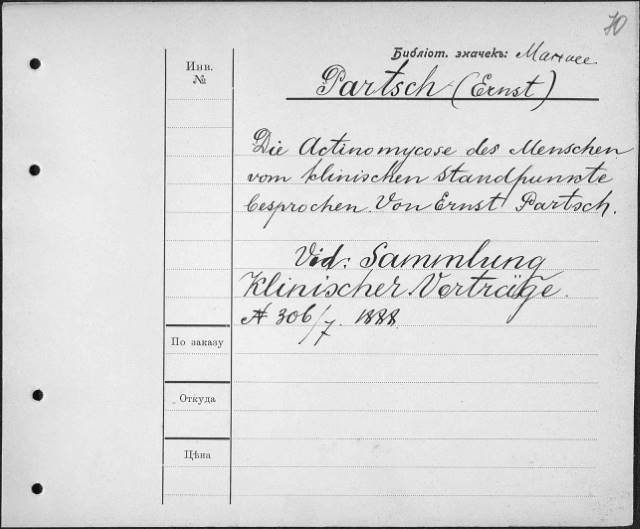 70
Библіот. значекъ:
Инв.
№
Partsch (Ernst)
Die Actinomycose des Menschen
vom klinischen Standpunkte
besprochen. Von Ernst Partsch.
Vid: Sammlung
Klinischer Vorträge.
№ 306/7. 1888.
По заказу
Откуда
Цѣна